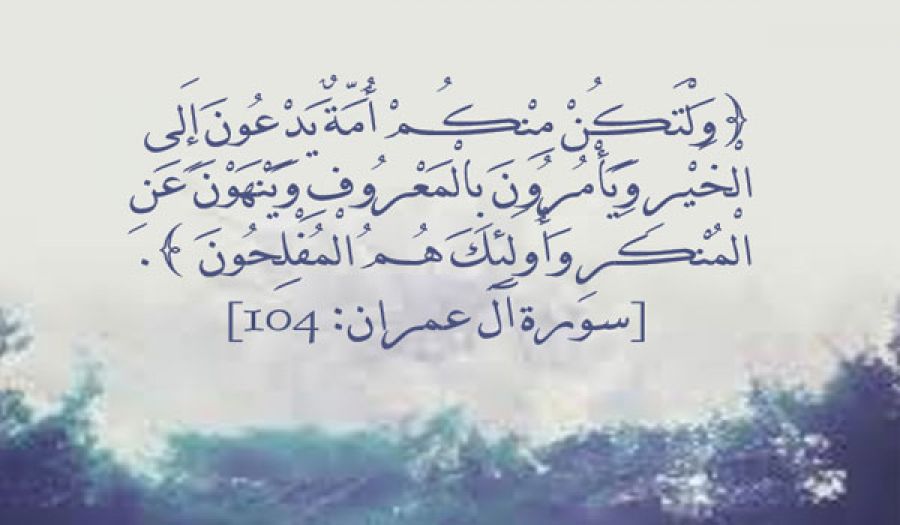 ﴿ وَلْتَكُنْ مِنْكُمْ أُمَّةٌ يَدْعُونَ إِلَى
الْخَيْرِ وَيَأْمُرُونَ بِالْمَعْرُوفِ وَيَنْهَوْنَ عَنِ
الْمُنْكَرِ وَأُولَئِكَ هُمُ الْمُفْلِحُونَ ﴾.
[سورة آل عمران: 104]